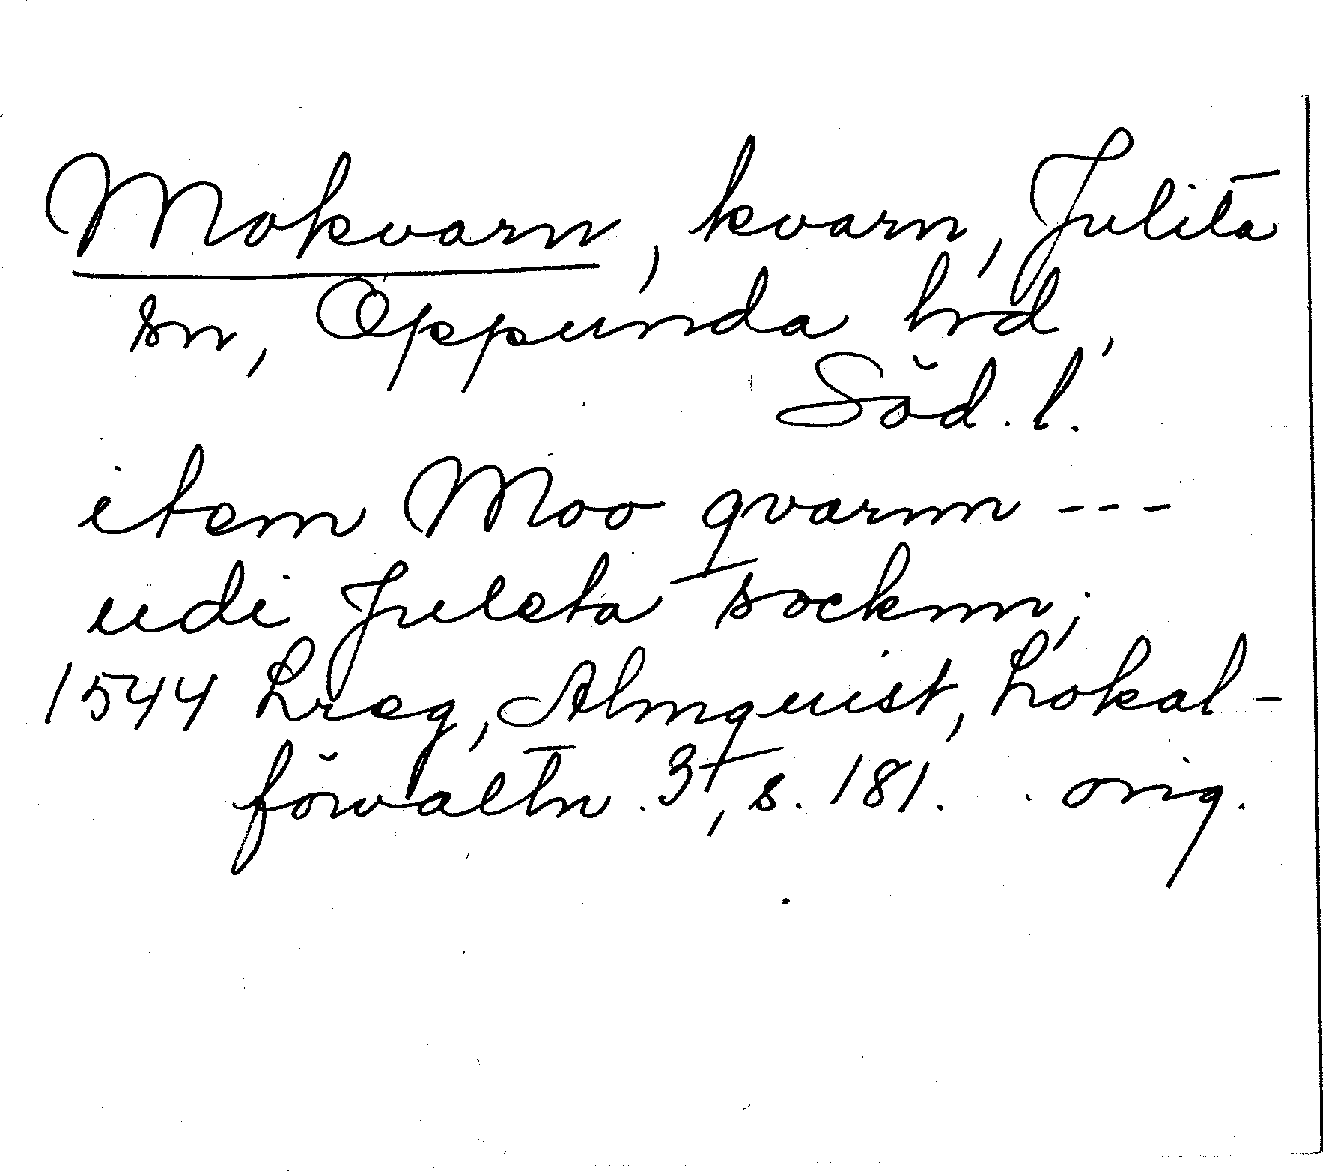 Mokvarn, kvarn, Julita
sn, Oppunda hrd,
Söd. l.
item Moo qvarnn ---
udi Juleta socknn;
1544 Lreg, Almquist, Lokal-
förvaltn. 3, s. 181. orig.